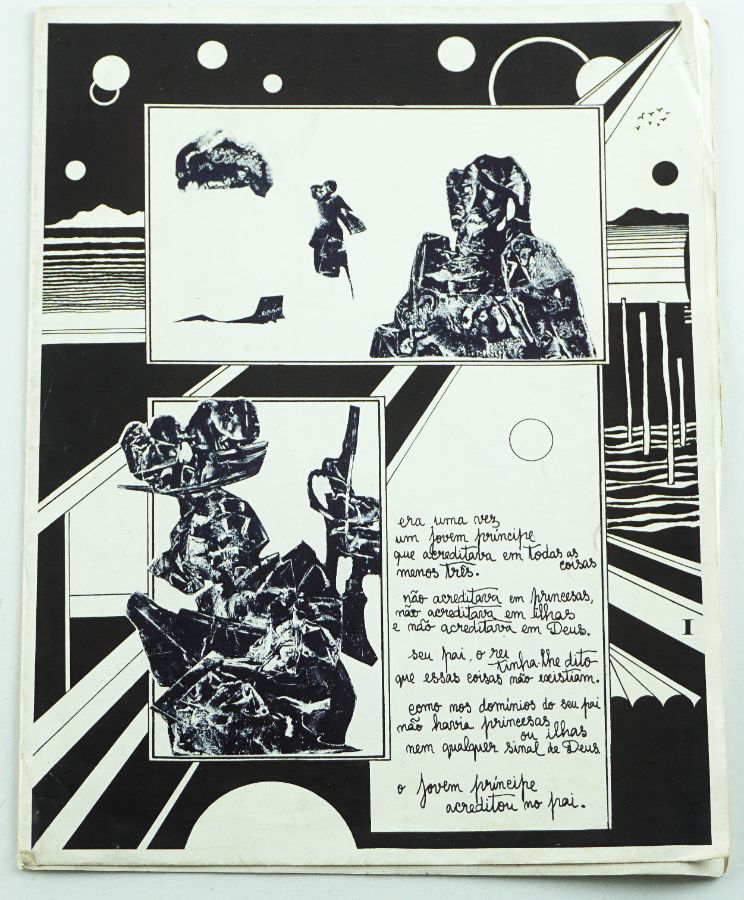 era uma vez
um jovem príncipe
que acreditava em todas as
coisas
menos três.
não acreditava em princesas,
não acreditava em ilhas
e não acreditava em Deus.
seu pai, o rei
tinha-lhe dito
que essas coisas não existiam.
como nos domínios do seu pai
não havia princesas
ou ilhas
nem qualquer sinal de Deus
o jovem príncipe
acreditou no pai.
I